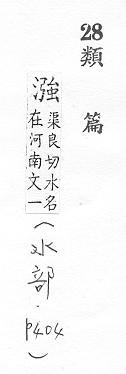 28
類篇
漒渠良切水名
在河南文一
(水部·p404)